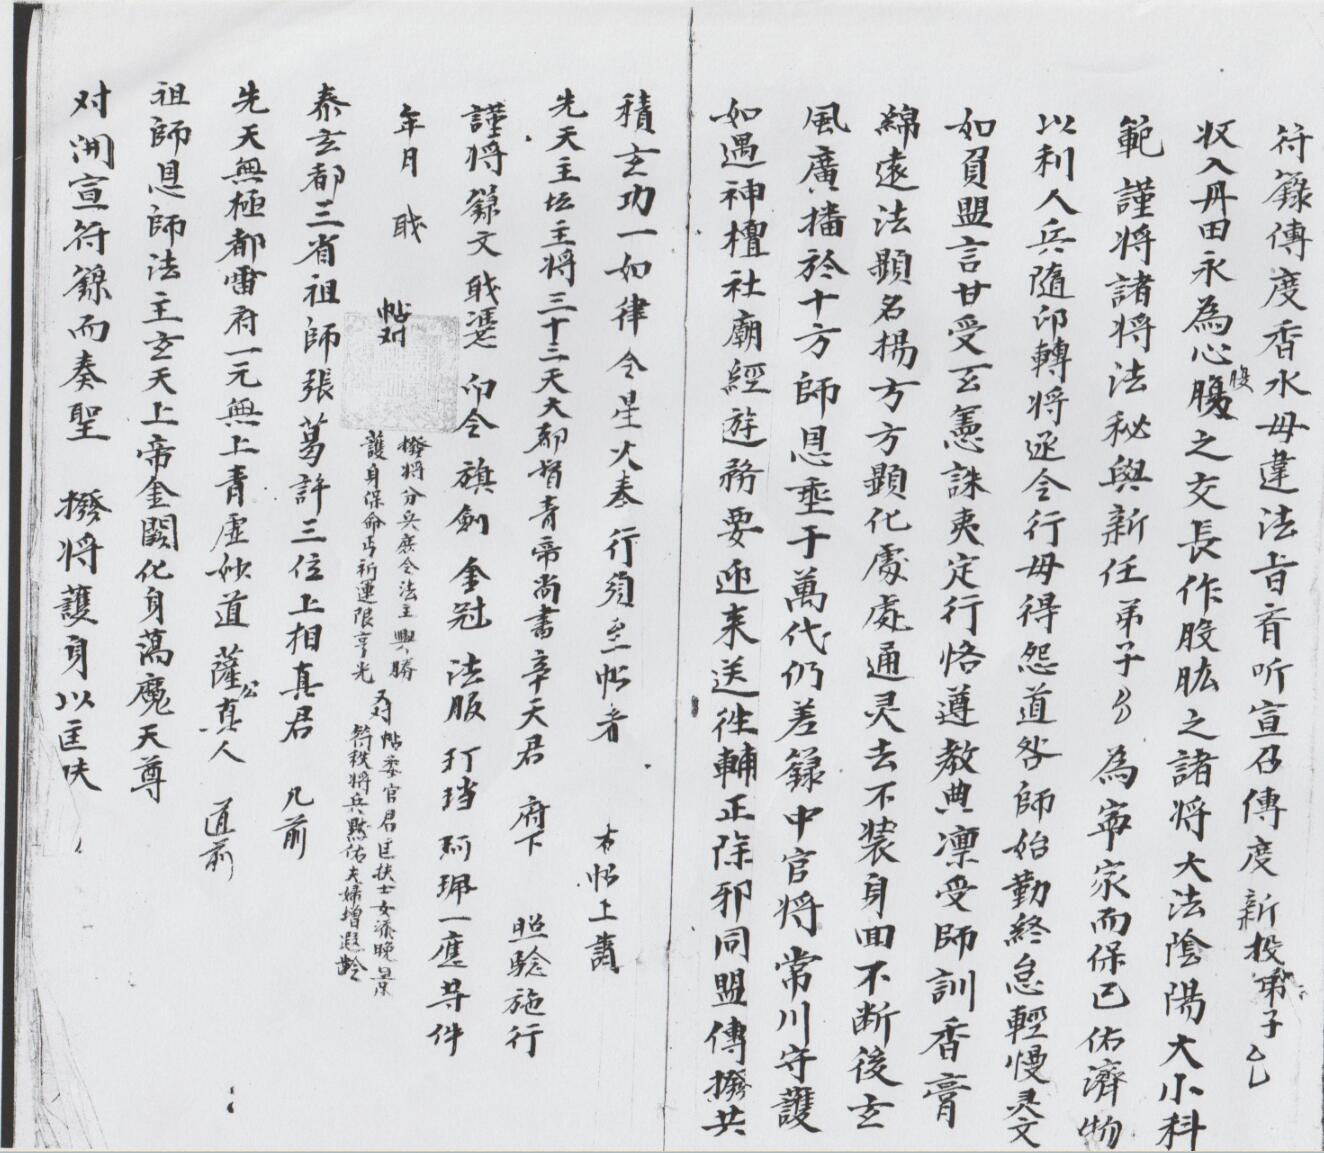 符籙傳度香水毋違法旨育听宣召傳度新投弟子乙
収入丹田永為心腹之交長作股肱之諸将大法陰陽大小科
範謹将諸将法秘與新任弟子為寧家而保己佑濟物
以利人兵隨印轉将逐令行毋得怨道咎師始勤終怠輕慢灵文
如負盟言甘受玄憲誅夷定行恪遵教典凜受師訓香膏
綿遠法顯名揚方方顯化處處通灵去不装身回不断後玄
風廣播於十方師恩垂于萬代仍差籙中官将常川守護
如遇神檀社廟經遊務要迎来送徃輔正除邪同盟傳撥共
積玄功一如律令星火奉行須至帖者 右帖上請
先天主坛主将三十三天大都督青帝尚書辛天君 府下 照驗施行
謹将籙文戝憑 印令 旗劍 金冠 法服 玎珰 珂珮一應等件
年月 戝 帖对
撥将分兵廣令法主興勝
護身保命丐祈運限亨光
对
帖委官君匡扶士女濟晚景
符秩将兵黙佑夫婦增遐齡
泰玄都三省祖師張葛許三位上相真君 凡前
先天無極都雷府一元無上青虛妙道薩公真人 道前
祖師恩師法主玄天上帝金闕化身蕩魔天尊
对 淵宣符籙而奏聖 撥将護身以匡扶